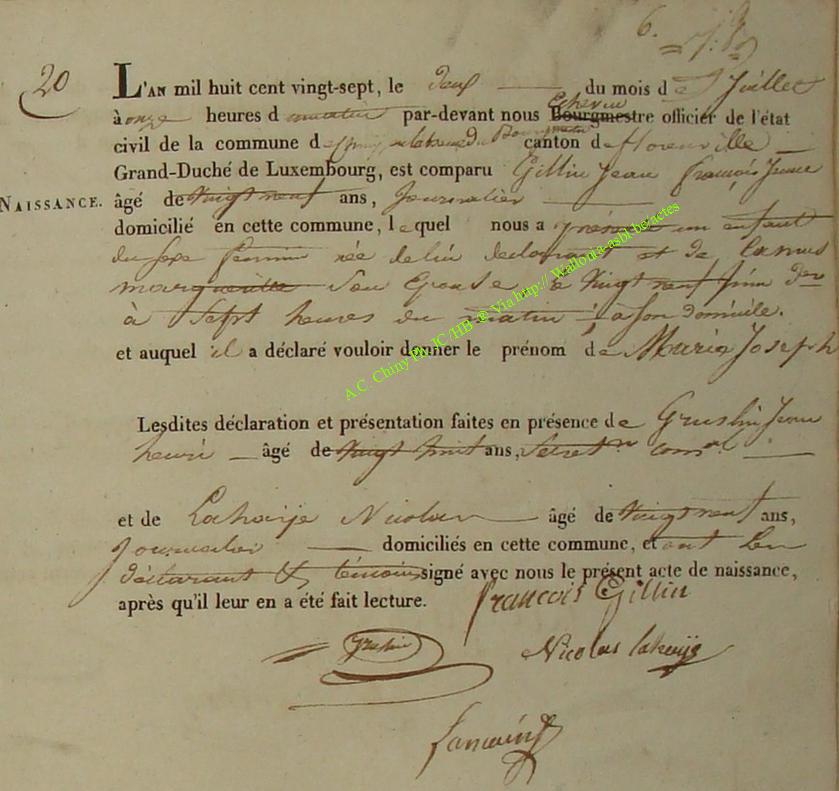 6.
20
L'AN mil huit cent vingt-sept, le deux du mois de Juillet
à onze heures du matin par-devant nous Echevin Bourgmestre officier de l'état
civil de la commune de Chiny canton de florenville
Grand-Duché de Luxembourg, est comparu Gillin Jean françois Jeune
NAISSANCE. âgé de vingt neuf ans, Journalier
domicilié en cette commune, lequel nous a présenté un enfant
du sexe feminin née de lui declarant et de
marguerite son Epouse, le vingt neuf Juin der
à Sept heures du matin, à son domicile.
et auquel il a déclaré vouloir donner le prénom de Marie Joseph
Lesdites déclaration et présentation faites en présence de Gruslin Jean
henri âgé de vingt huit ans, Secretre comal
et de Lahaije Nicolas âgé de vingt neuf ans,
Journalier domiciliés en cette commune, et ont les
déclarant et témoins signé avec nous le présent acte de naissance,
après qu'il leur en a été fait lecture.
françois Gillin
Gruslin
Nicolas lahaije
A.C. Chiny Ph JC /HB © Via http:// Wallonia-asbl-be/actes